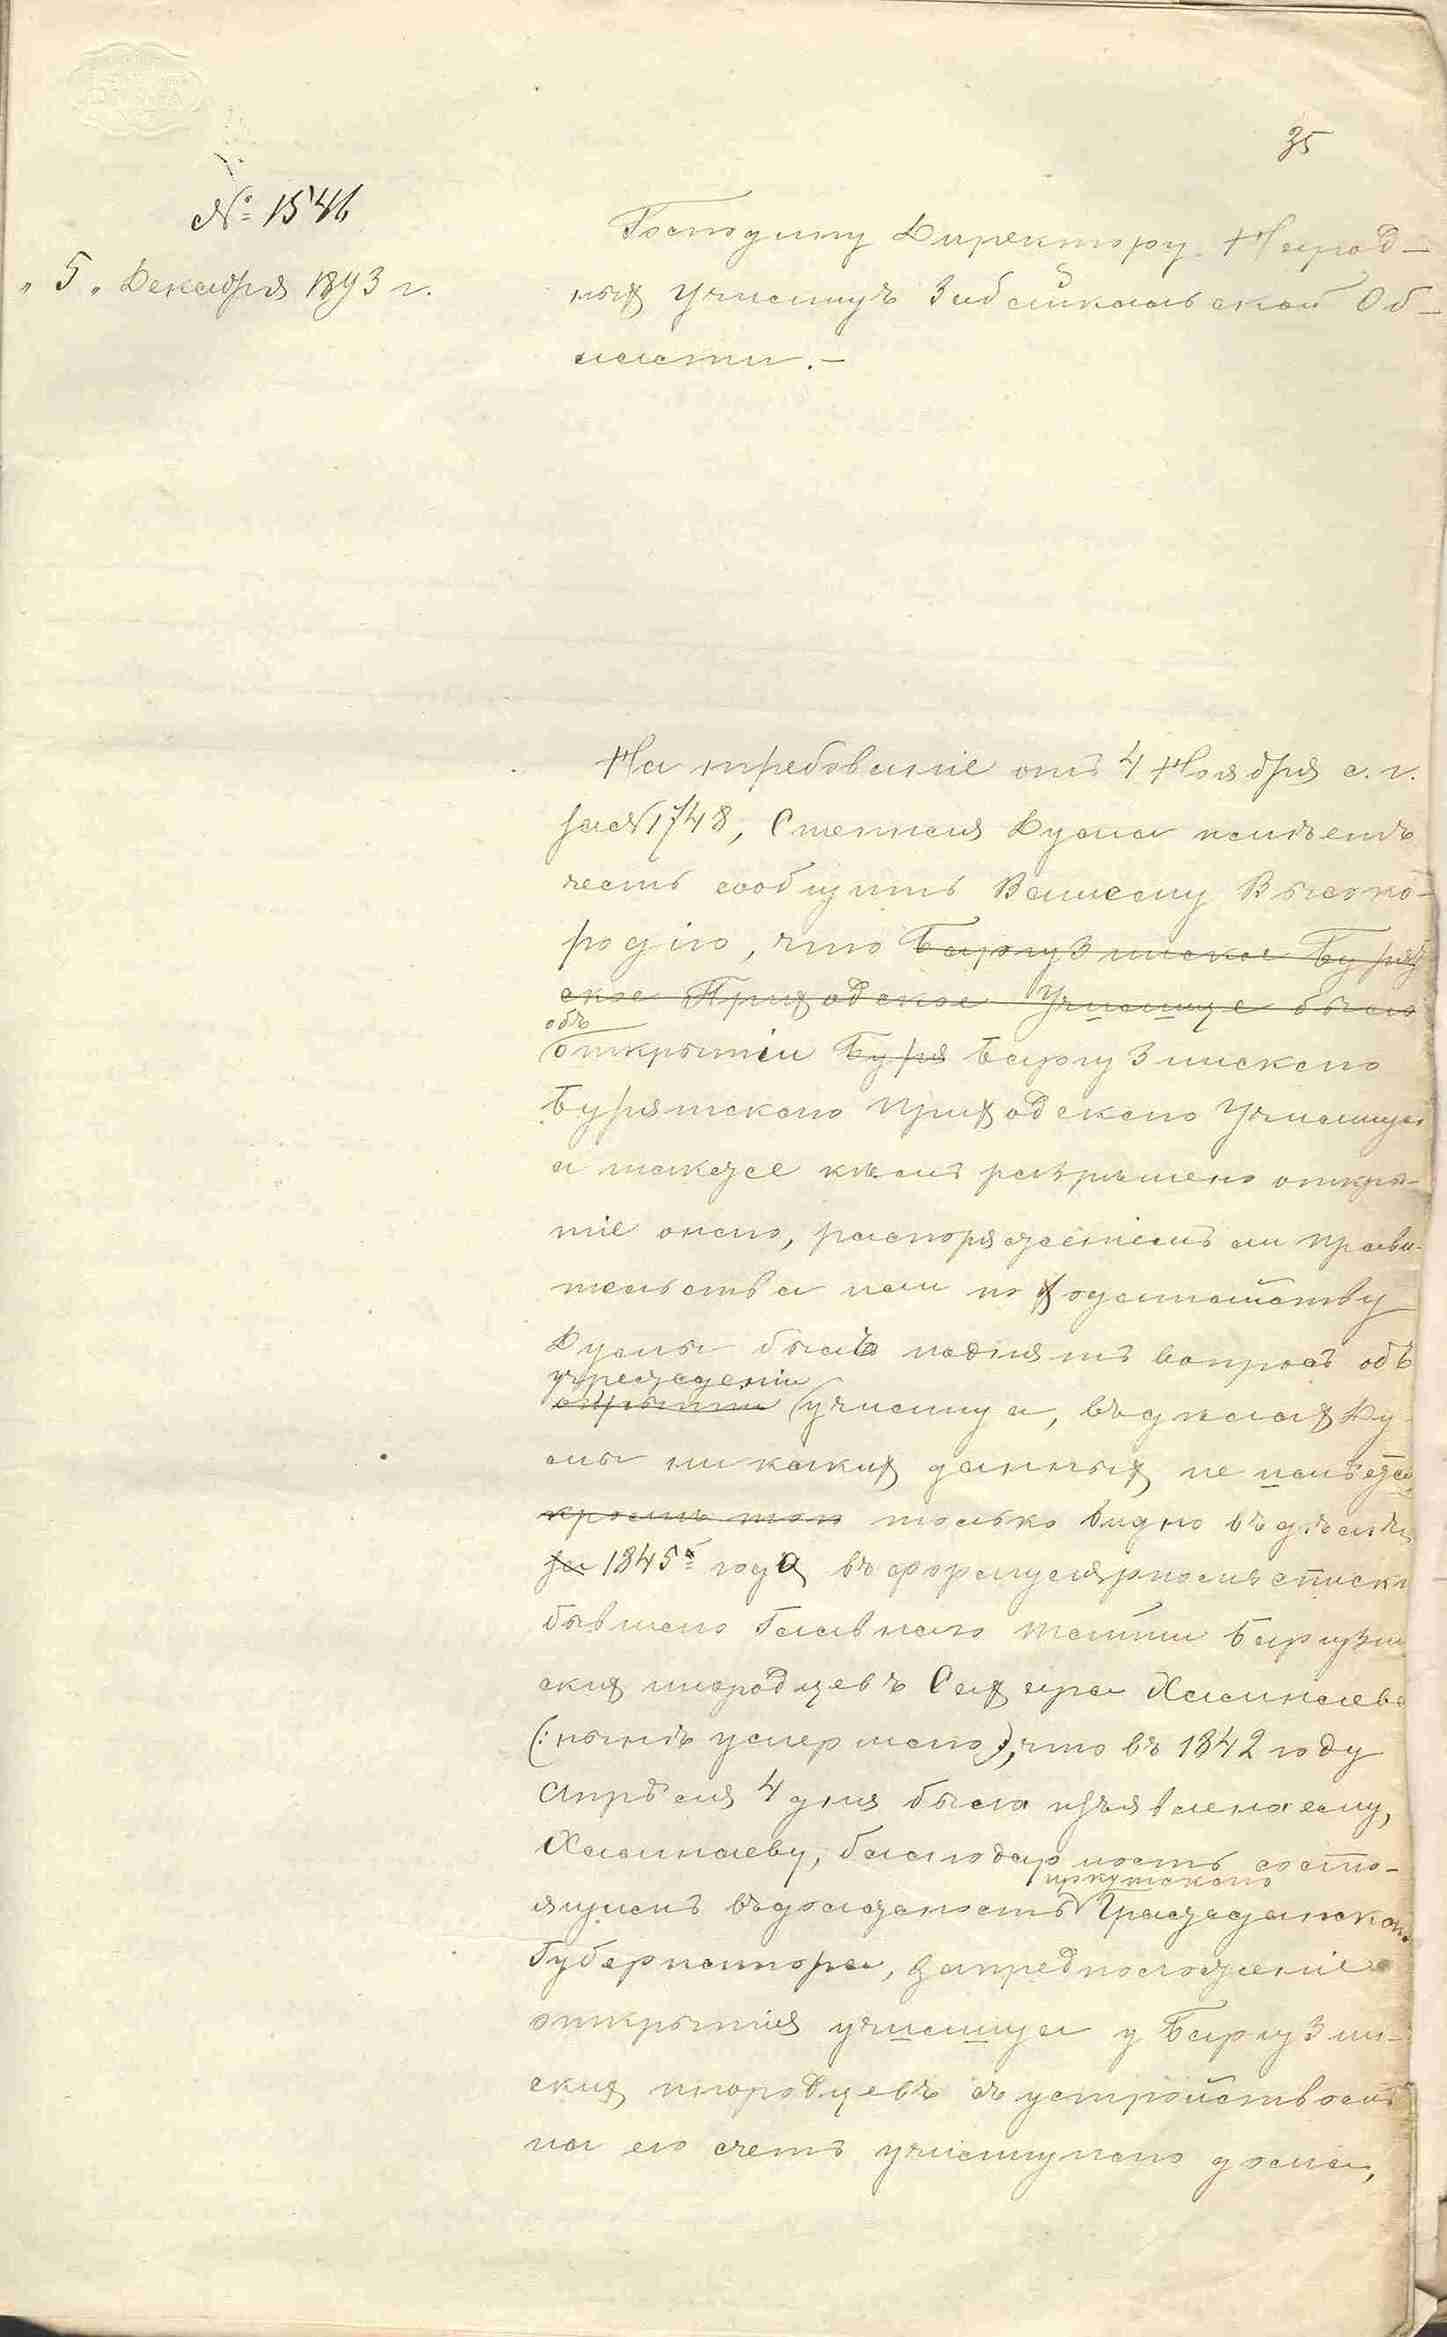 35
№ 1546
„ 5 „ Декабря 1893 г.
Господину Директору Народ-
ныхъ Училищъ Забайкальской Об-
ласти. –
На требованіе отъ 4 Ноября с. г.
за № 1748, Степная Дума имѣетъ
честь сообщить Вашему Высоко-
родію, что Баргузинское Бурят
ское Приходское Училище было
объ
открытіи Буря Баргузинскаго
Бурятскаго Приходскаго Училища
а также кѣмъ разрѣшено откры-
тіе онаго, распоряженіемъ ли прави-
тельства или по ходатайству
Думы былъ поднятъ вопросъ объ
учрежденіи
открытіи училища, въ дѣлахъ Ду-
мы ни какихъ данныхъ не имѣется
кромѣ того только видно въ дѣлѣ
за 1845 года въ формулярномъ списки
бывшаго Главнаго тайши Баргузин
скихъ инородцевъ Сахара Хамнаева
(: нынѣ умершаго), что въ 1842 году
Апрѣля 4 дня было изъявлено ему,
Хамнаеву, благодарность состо-
иркутскаго
ящимъ въ должность Гражданскаго
Губернатора, за предположеніе
открытія училища у Баргузин-
скихъ инородцевъ съ устройствомъ
на его счетъ училищнаго дома,